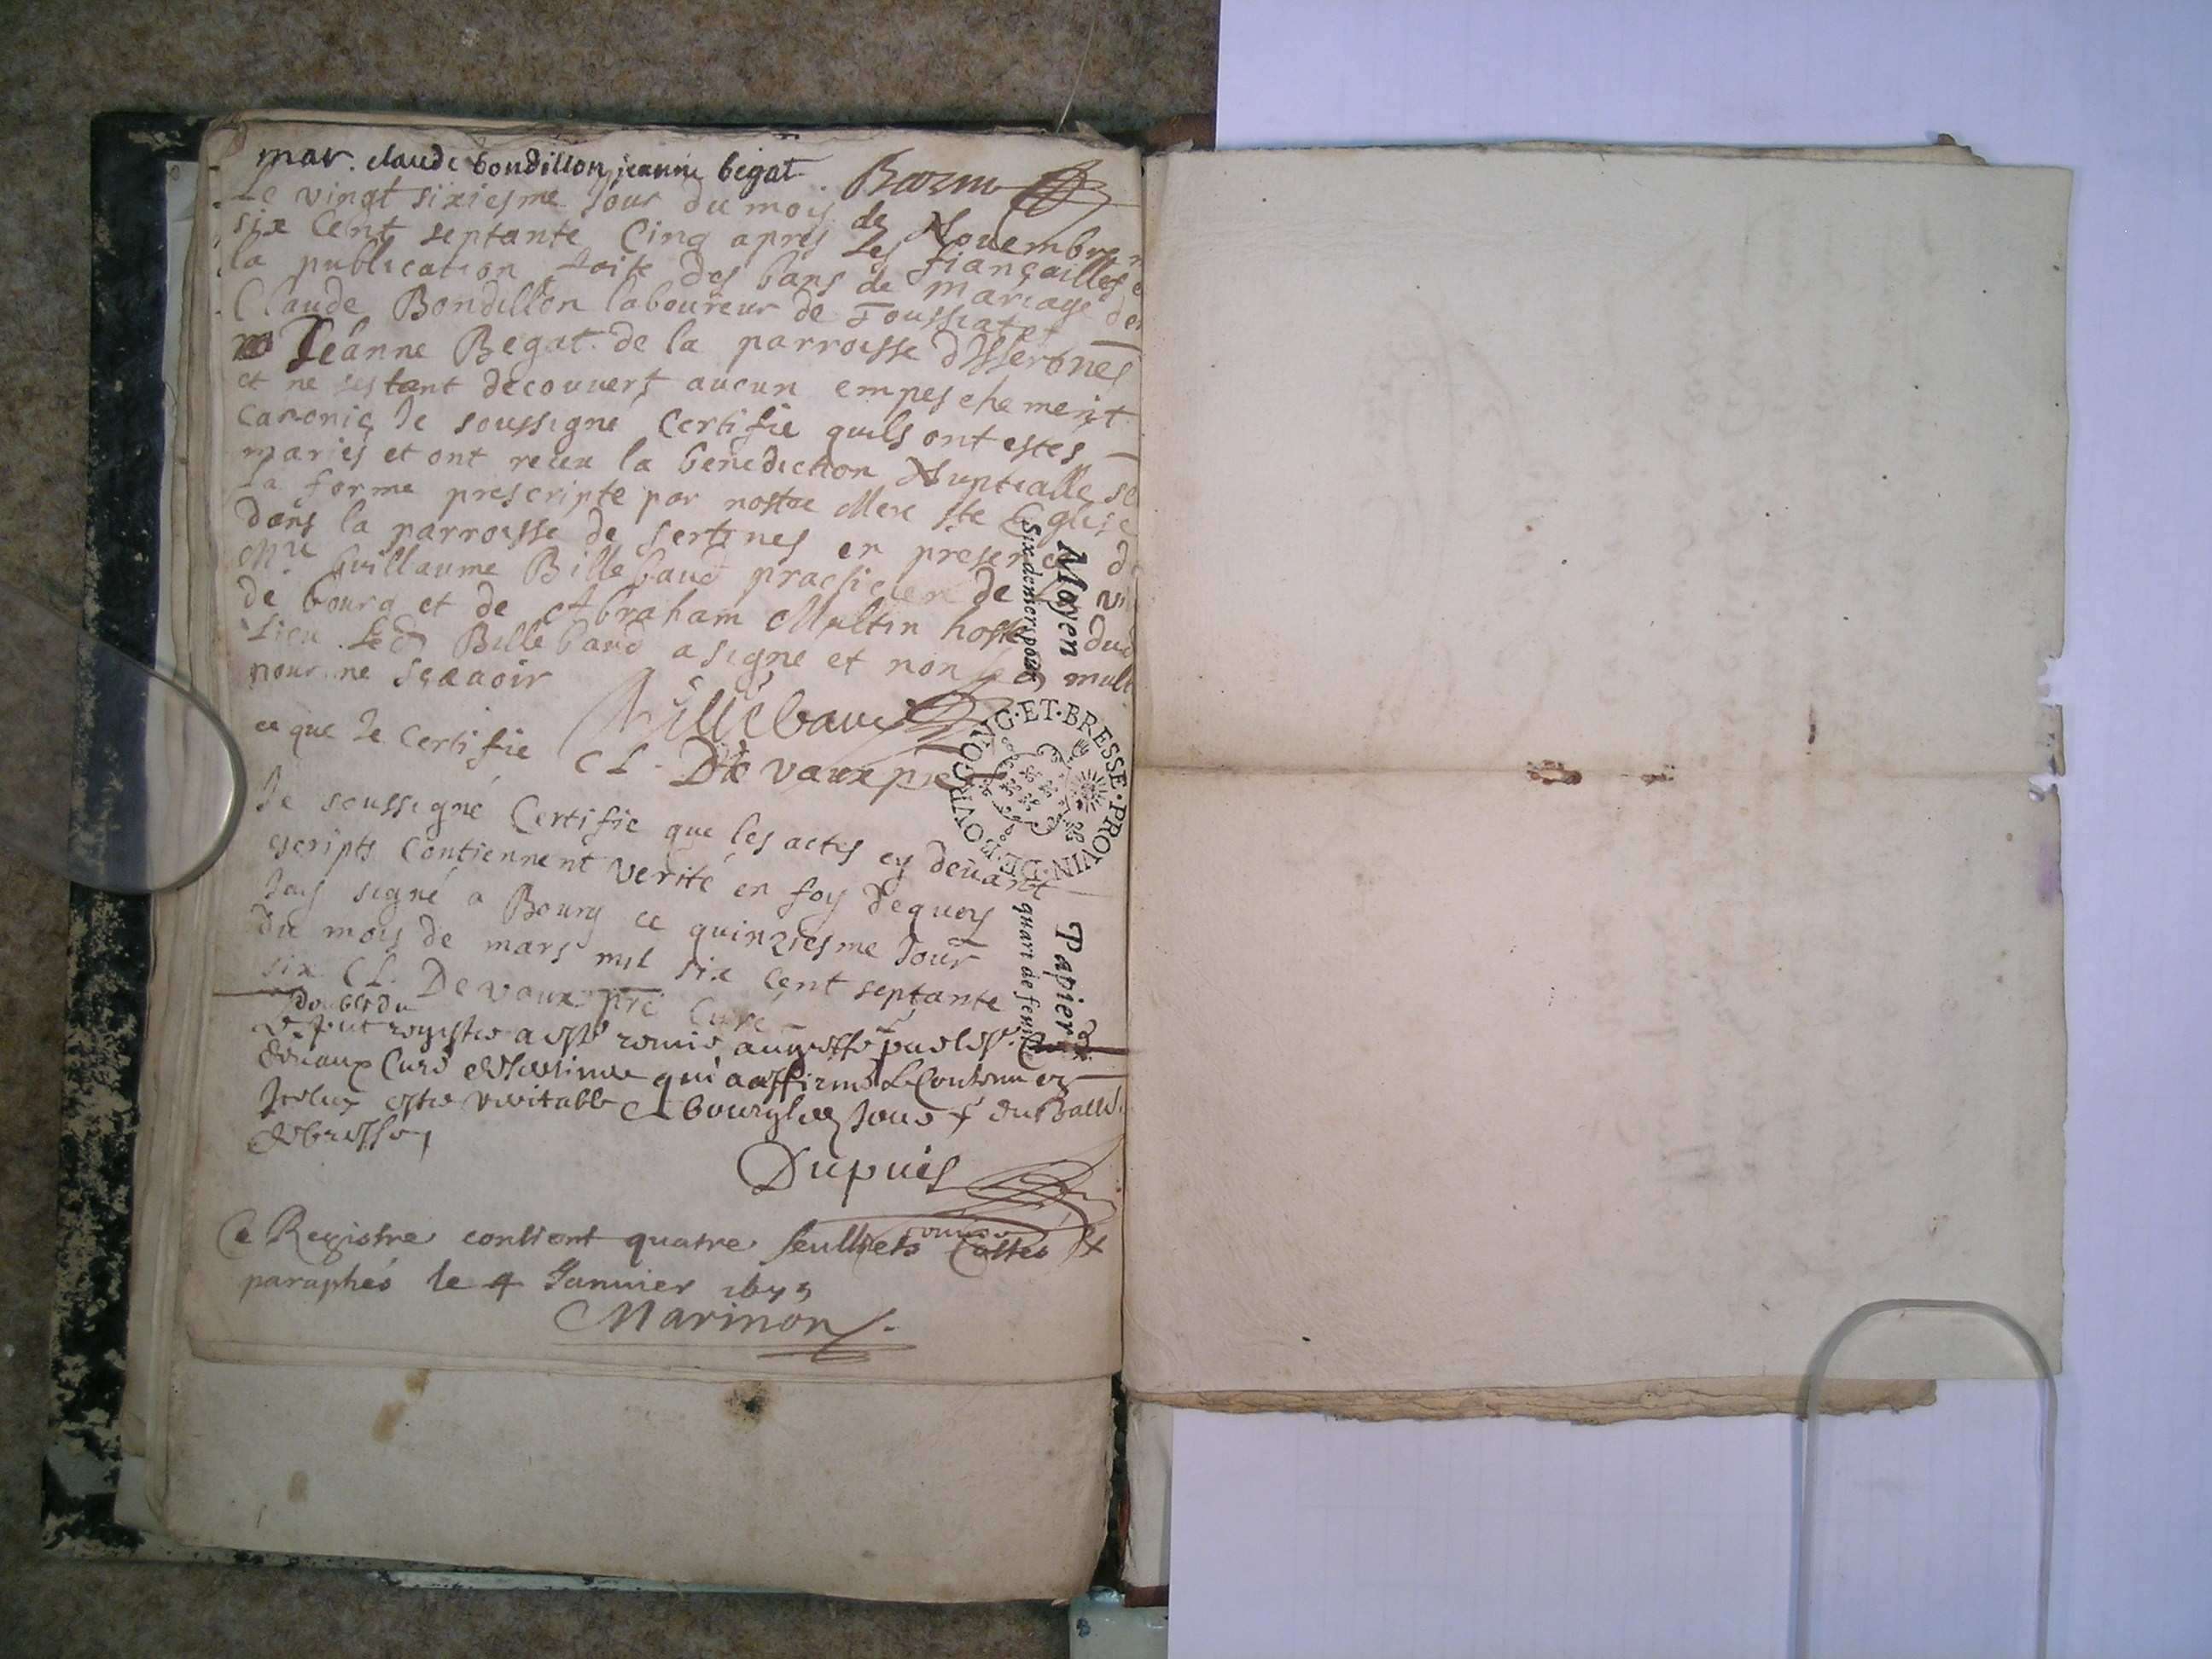 mar. claude bondillon jeanne begat
Le vingt sixiesme Jour du mois de Nouembre
six Cent septante Cinq apres les fiançailles
la publication faite des bans de mariage de
Claude Bondillon laboureur de Toussiat et
Jeanne Begat de la parroisse
et ne sestant decouuert aucun empeschement
canonic Je soussigné Certifie quils ont estes
mariés et ont receu la benediction Nuptialle
la forme prescripte par nostre Mere ste Eglise
dans la parroisse de sertines en presence de
Mre Guillaume Billebaud practicien de
de bourg et de Abraham Multin hoste dud
Lieu. Led Billebaud a signé et non led mult
pour ne sçauoir
Billebaud
ce que Je Certifie CL. De vaux pre
Je soussigné Certifie que les actes cy deuant
escripts Contiennent verité en foy dequoy
Jay signé a Bourg ce quinziesme Jour
du mois de mars mil six Cent septante
six CL. De vaux pre Curé
double du
registre a esté remis au greffe par le
Deuaux Curé de qui a affirmé le Contenu en
Iceluy estre veritable A bourg
de bresse
Dupuis
Ce Registre contient quatre feulliets Cottes et
paraphés le 4 Januier 1675
Marinon
Moyen Papier
Six deniers pour quart de feuille
G·ET·BRESSE·PROVIN·DE·BOVRGO